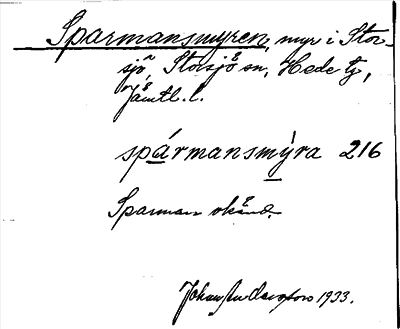 Sparmansmyren, myr i Stor-
sjö, Storsjö sn, Hede tg,
Jämtl. l.
spármansmýra 216
Sparman okänd.
1933.